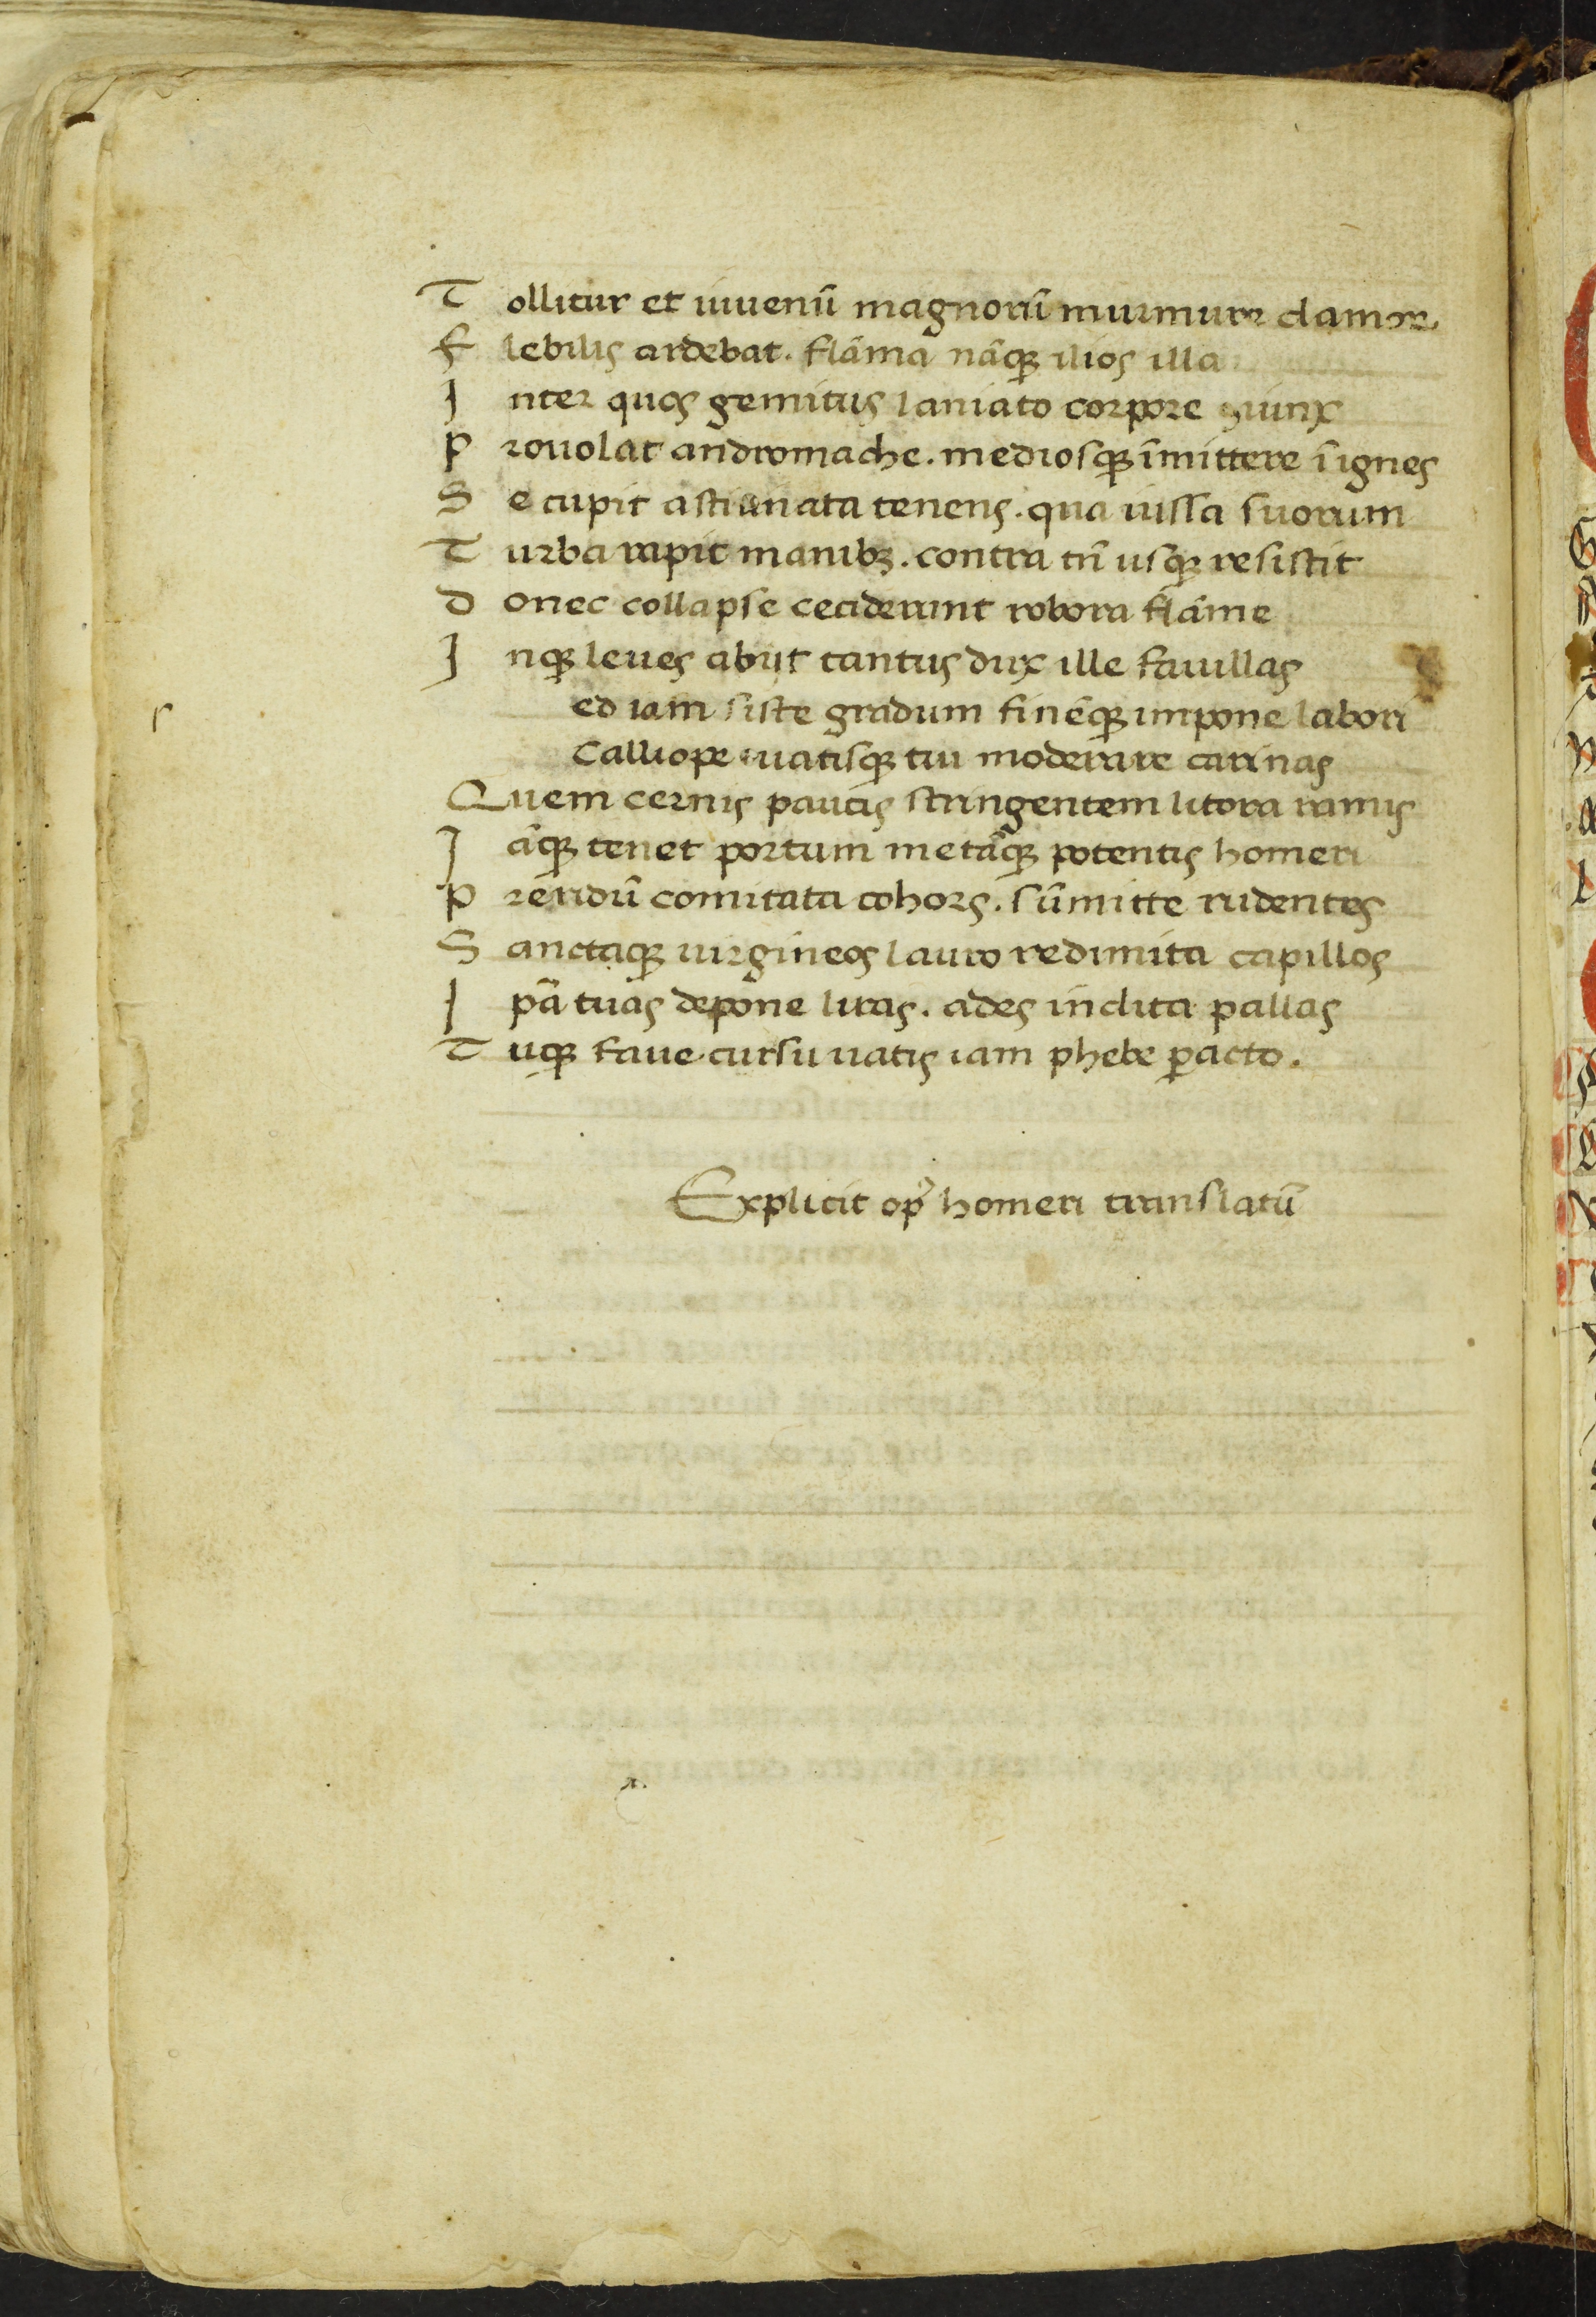 Tollitur et iuuenū magnorū murmure clamor
flebilis ardebat. flāma nāqꝫ ilios illa
Inter quos gemitus laniato corpore ꝯiunx
prouolat andromache. mediosqꝫ īmittere ī ignes
Se cupit astianata tenens. qua iussa suorum
Turba rapit manibꝫ. contra tn̄ usqꝫ resistit
donec collapse ceciderunt robora flāme
Inqꝫ leues abiit tantus dux ille fauillas
ed iam siste gradum finēqꝫ impone labori
Calliope uatisqꝫ tui moderare carinas
Quem cernis paucis stringentem litora ramis
Iāqꝫ tenet portum metāqꝫ potentis homeri
pieridū comitata cohors. sūmitte rudentes
Sanctaqꝫ uirgineos lauro redimita capillos
Ipā tuas depone liras. ades inclita pallas
Tuqꝫ faue cursu uatis iam phebe ꝑacto.
Explicit op̄ homeri translatū